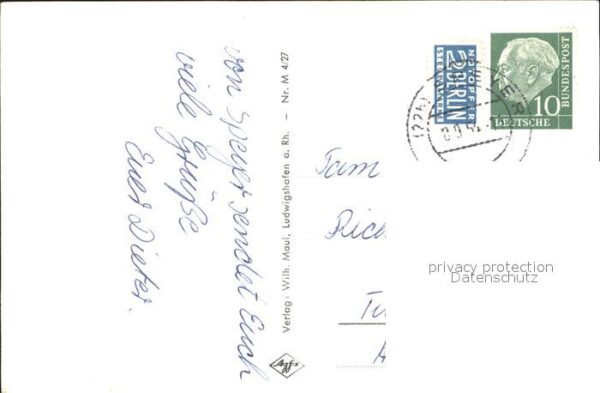 von Speyer sendet Euch
viele Grüße
Euer Dieter.
Verlag: Wilh. Maul, Ludwigshafen a. Rh. — Nr. M 4/27
Agfa
NOTOPFER
2 BERLIN
STEUERMARKE
10
DEUTSCHE
BUNDESPOST
(22b)
Fam
privacy protection
Datenschutz